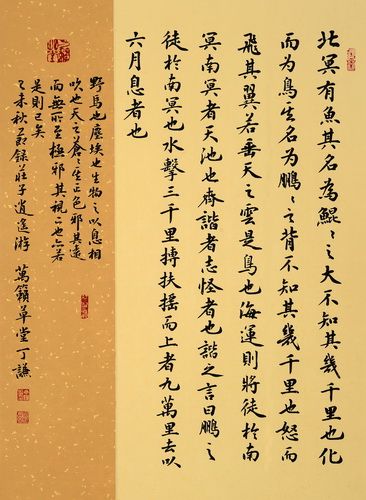 北冥有魚其名為鯤〻之大不知其幾千里也化
而為鳥其名為鵬〻之背不知其幾千里也怒而
飛其翼若垂天之雲是鳥也海運則將徙於南
冥南冥者天池也齊諧者志怪者也諧之言曰鵬之
徙於南冥也水擊三千里摶扶搖而上者九萬里去以
六月息者也
野馬也塵埃也生物之以息相
吹也天之蒼〻其正色邪其遠
而無所至極邪其視下也亦若
是則已矣
乙未秋節錄莊子逍遙游 萬籟草堂丁謙